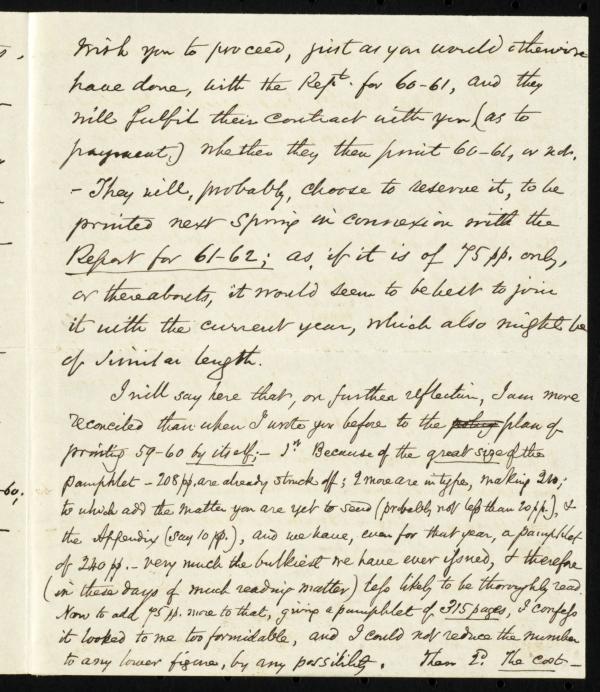 wish you to proceed, just as you would otherwise
have done, with the Rept. for 60-61, and they
will fulfil their contract with you (as to
payment,) whether they then print 60-61, or not.
- They will, probably, choose to reserve it, to be
printed next Spring in connexion with the
Report for 61-62; as, if it is of 75 pp. only,
or thereabouts, it would seem to be best to join
it with the current year, which also might be
of similar length.
I will say here that, on further reflection, I am more
reconciled than when I wrote you before to the plan of
printing 59-60 by itself; - 1st Because of the great size of the
pamphlet - 208 pp. are already struck off; 2 more are in type, making 210;
to which add the matter you are yet to send (probably not less than 20 pp.), &
the Appendix (say 10 pp.), and we have, even for that year, a pamphlet
of 240 pp. - very much the bulkiest we have ever issued, & therefore
(in these days of much reading matter) less likely to be thoroughly read.
Now to add 75 pp. more to that, giving a pamphlet of 315 pages, I confess
it looked to me too formidable, and I could not reduce the number
to any lower figure, by any possibility. Then 2d. The cost -
-60,